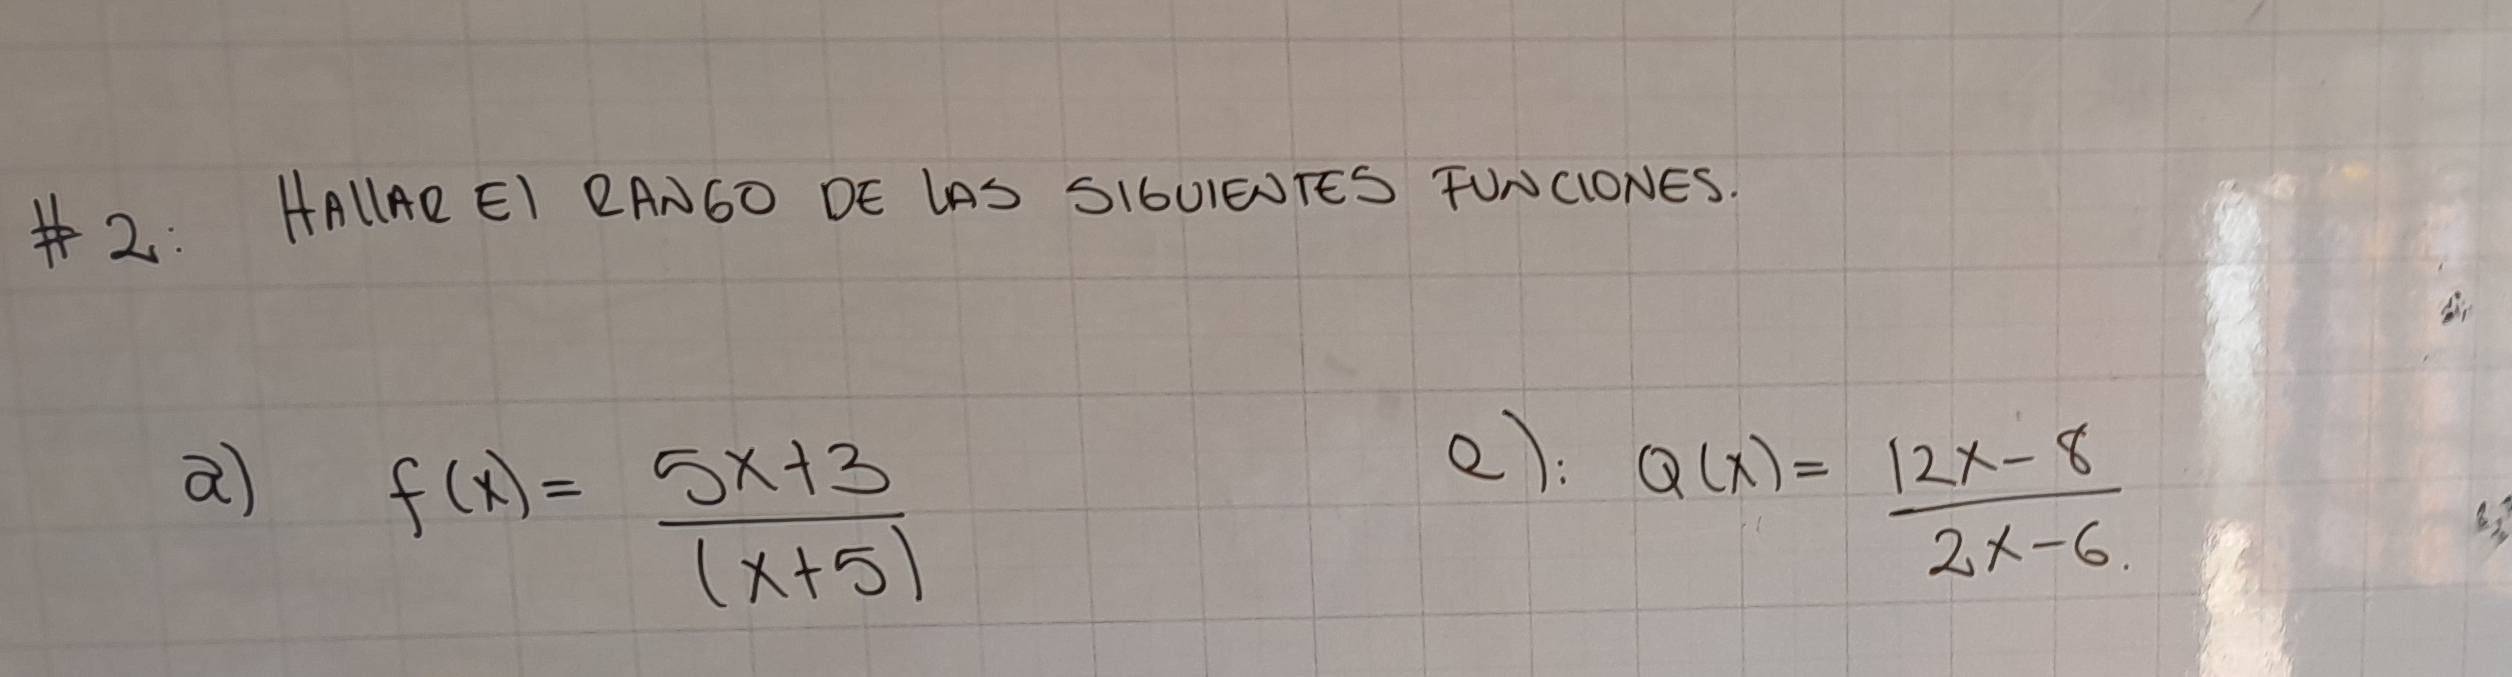 #2: HAllAR El RANGO DE LAS SIGUIENTES FUNCIONES.
a) f(x) = 5x+3
(x+5)
e): Q(x) = 12x-8
2x-6.